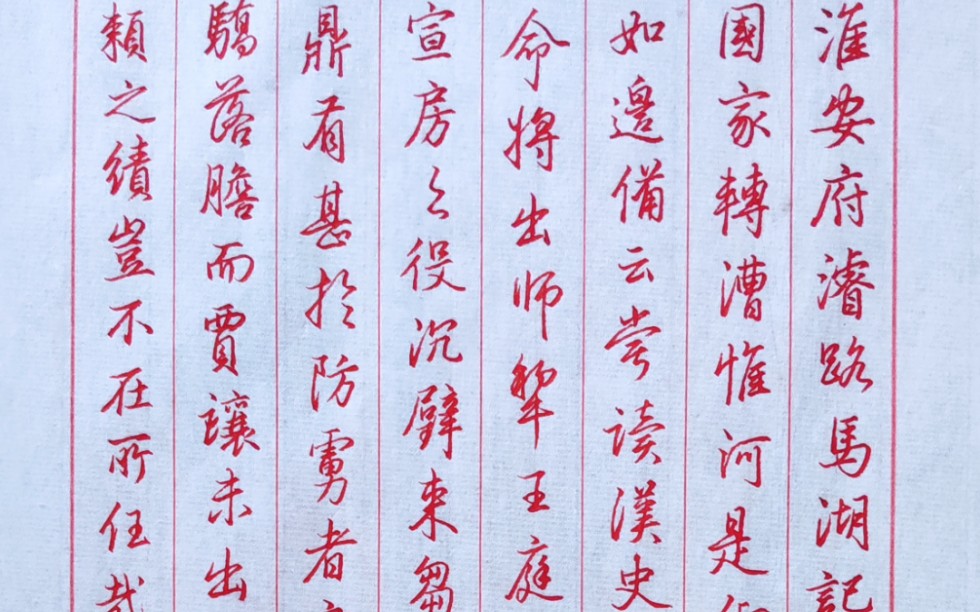 淮安府濬路馬湖記
國家轉漕惟河是
如邊備云嘗读漢史
命將出师犂王庭
宣房之役沉璧束芻
鼎有甚於防虜者
驕落膽而賈讓未出
頼之績豈不在所任哉